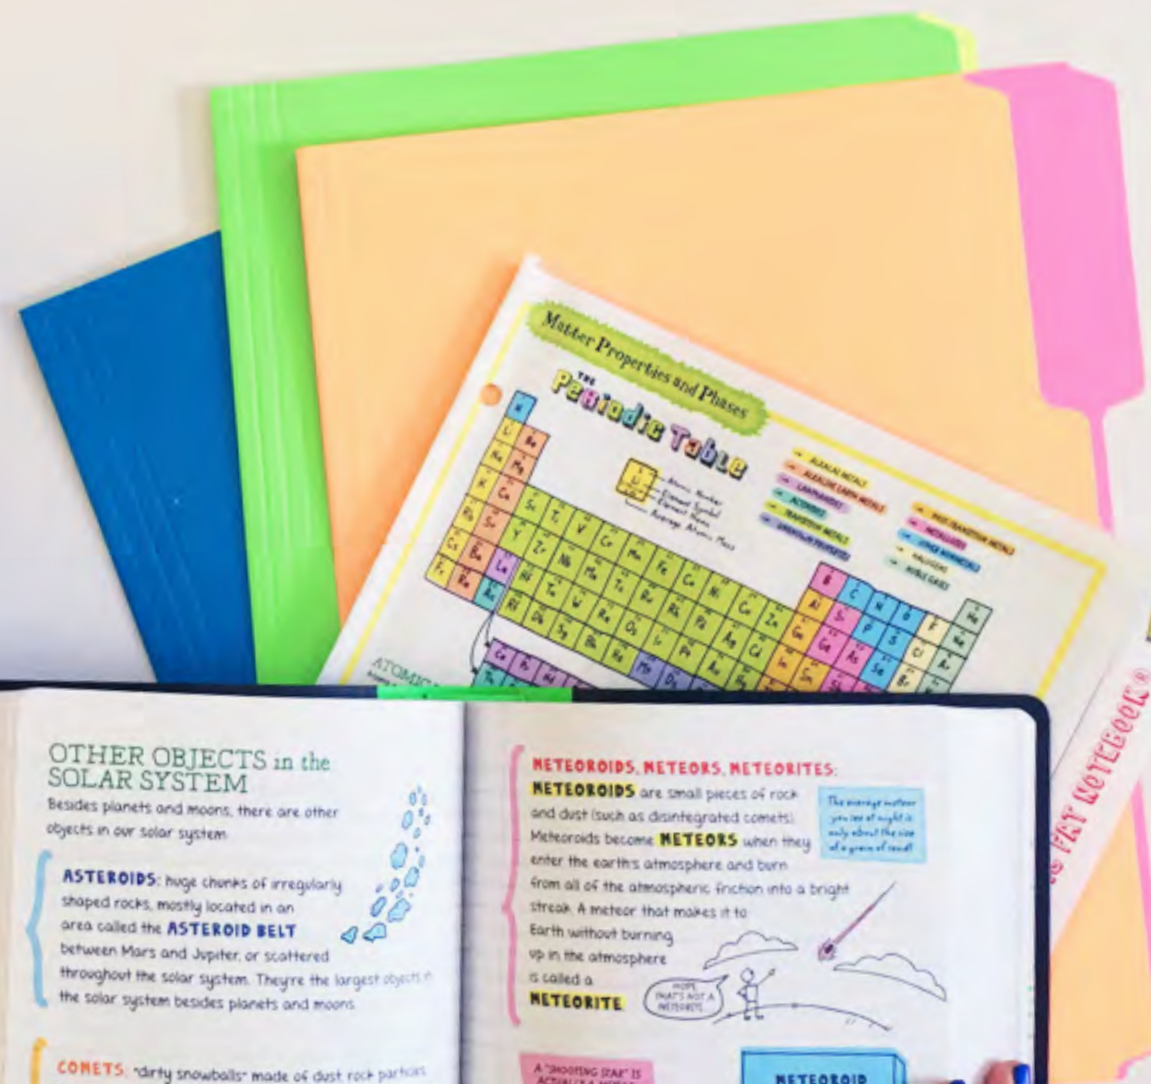 Matter Properties and Phases
THE
Periodic Table
Atomic Number
Element Symbol
Element Name
Average Atomic Mass
ALKALAI METALS
ALKALINE EARTH METALS
LANTHANIDES
ACTINIDES
TRANSITION METALS
UNKNOWN PROPERTIES
POST-TRANSITION METALS
METALLOIDS
OTHER NONMETALS
HALOGENS
NOBLE GASES
H
Li Be
Na Mg
K Ca Sc Ti V Cr Mn Fe Co Ni Cu Zn Ga Ge As Se Br
Rb Sr Y Zr Nb Mo Tc Ru Rh Pd Ag Cd In Sn
Cs Ba La Hf Ta W Re Os Ir Pt Au Hg
Fr Ra Ac Rf Db Sg Bh Hs Mt Ds
B C N O F He
Al Si P S Cl Ne
Ar
Ce Pr Nd
Th
ATOMIC
FAT NOTEBOOK®
OTHER OBJECTS in the
SOLAR SYSTEM
Besides planets and moons, there are other
objects in our solar system
ASTEROIDS: huge chunks of irregularly
shaped rocks, mostly located in an
area called the ASTEROID BELT
between Mars and Jupiter, or scattered
throughout the solar system. They're the largest objects in
the solar system besides planets and moons
COMETS: "dirty snowballs" made of dust rock particles
METEOROIDS, METEORS, METEORITES:
METEOROIDS are small pieces of rock
and dust (such as disintegrated comets)
Meteoroids become METEORS when they
enter the earth's atmosphere and burn
from all of the atmospheric friction into a bright
streak. A meteor that makes it to
Earth without burning
up in the atmosphere
is called a
METEORITE
The average meteor
you see at night is
only about the size
of a grain of sand!
HOPE
THAT'S NOT A
METEORITE
A "SHOOTING STAR" IS
ACTUALLY A METEOR
METEOROID